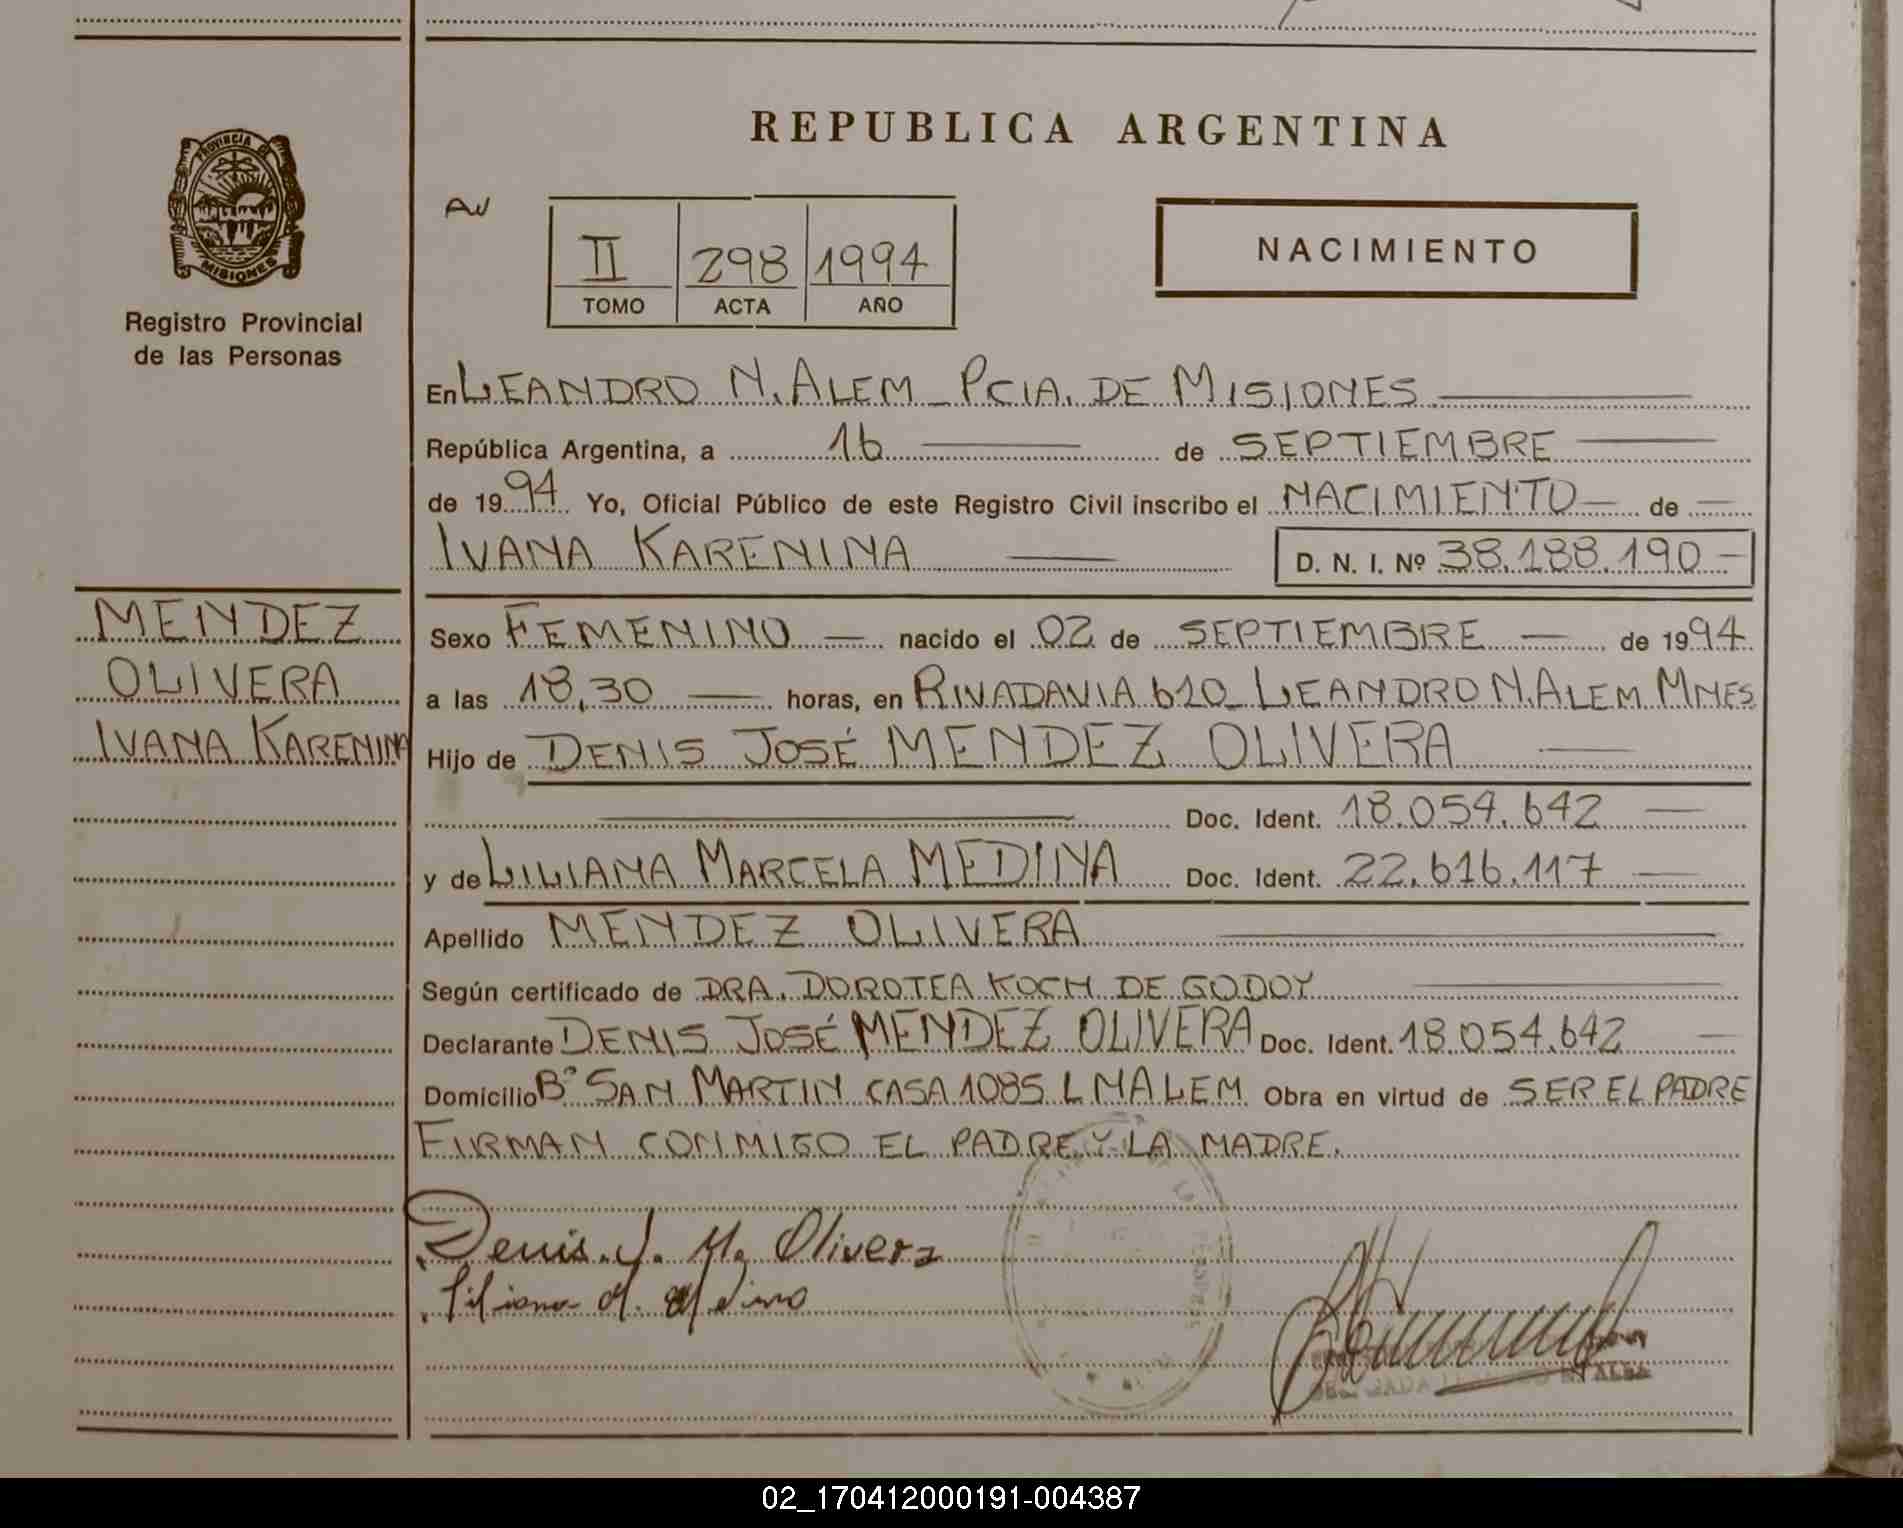 PROVINCIA DE
MISIONES
Registro Provincial
de las Personas
MENDEZ
OLIVERA
IVANA KARENINA
REPUBLICA ARGENTINA
II 298 1994
TOMO ACTA AÑO
NACIMIENTO
En LEANDRO N. ALEM - PCIA. DE MISIONES
República Argentina, a 16 de SEPTIEMBRE
de 1994 Yo, Oficial Público de este Registro Civil inscribo el NACIMIENTO de
IVANA KARENINA D. N. I. Nº 38.188.190
Sexo FEMENINO nacido el 02 de SEPTIEMBRE de 1994
a las 18,30 horas, en RIVADAVIA 620 - LEANDRO N. ALEM MNES
Hijo de DENIS JOSÉ MENDEZ OLIVERA
Doc. Ident. 18.054.642
y de LILIANA MARCELA MEDINA Doc. Ident. 22.616.117
Apellido MENDEZ OLIVERA
Según certificado de DRA. DOROTEA KOCH DE GODOY
Declarante DENIS JOSÉ MENDEZ OLIVERA Doc. Ident. 18.054.642
Domicilio Bº SAN MARTIN CASA 1085 L N ALEM Obra en virtud de SER EL PADRE
FIRMAN CONMIGO EL PADRE Y LA MADRE.
Denis. J. M. Olivera
Liliana M. Medina
02_170412000191-004387